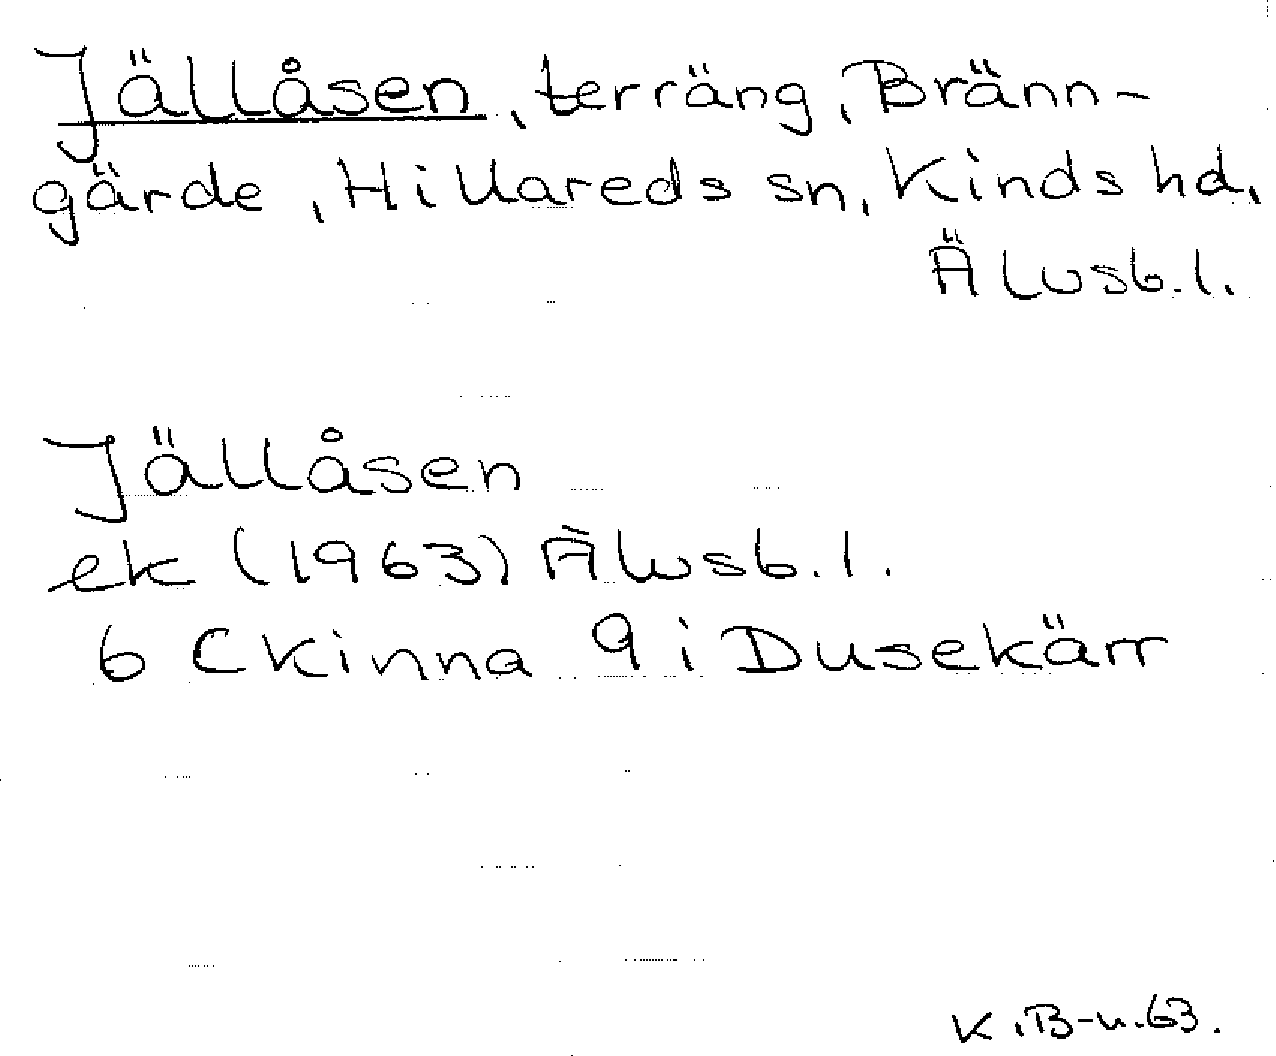 Jällåsen, terräng, Bränn-
gärde, Hillareds sn, Kinds hd,
Älvsb. l.
Jällåsen
ek (1963) Älvsb. l.
6 C Kinna 9 i Dusekärr
K. B-n. 63.